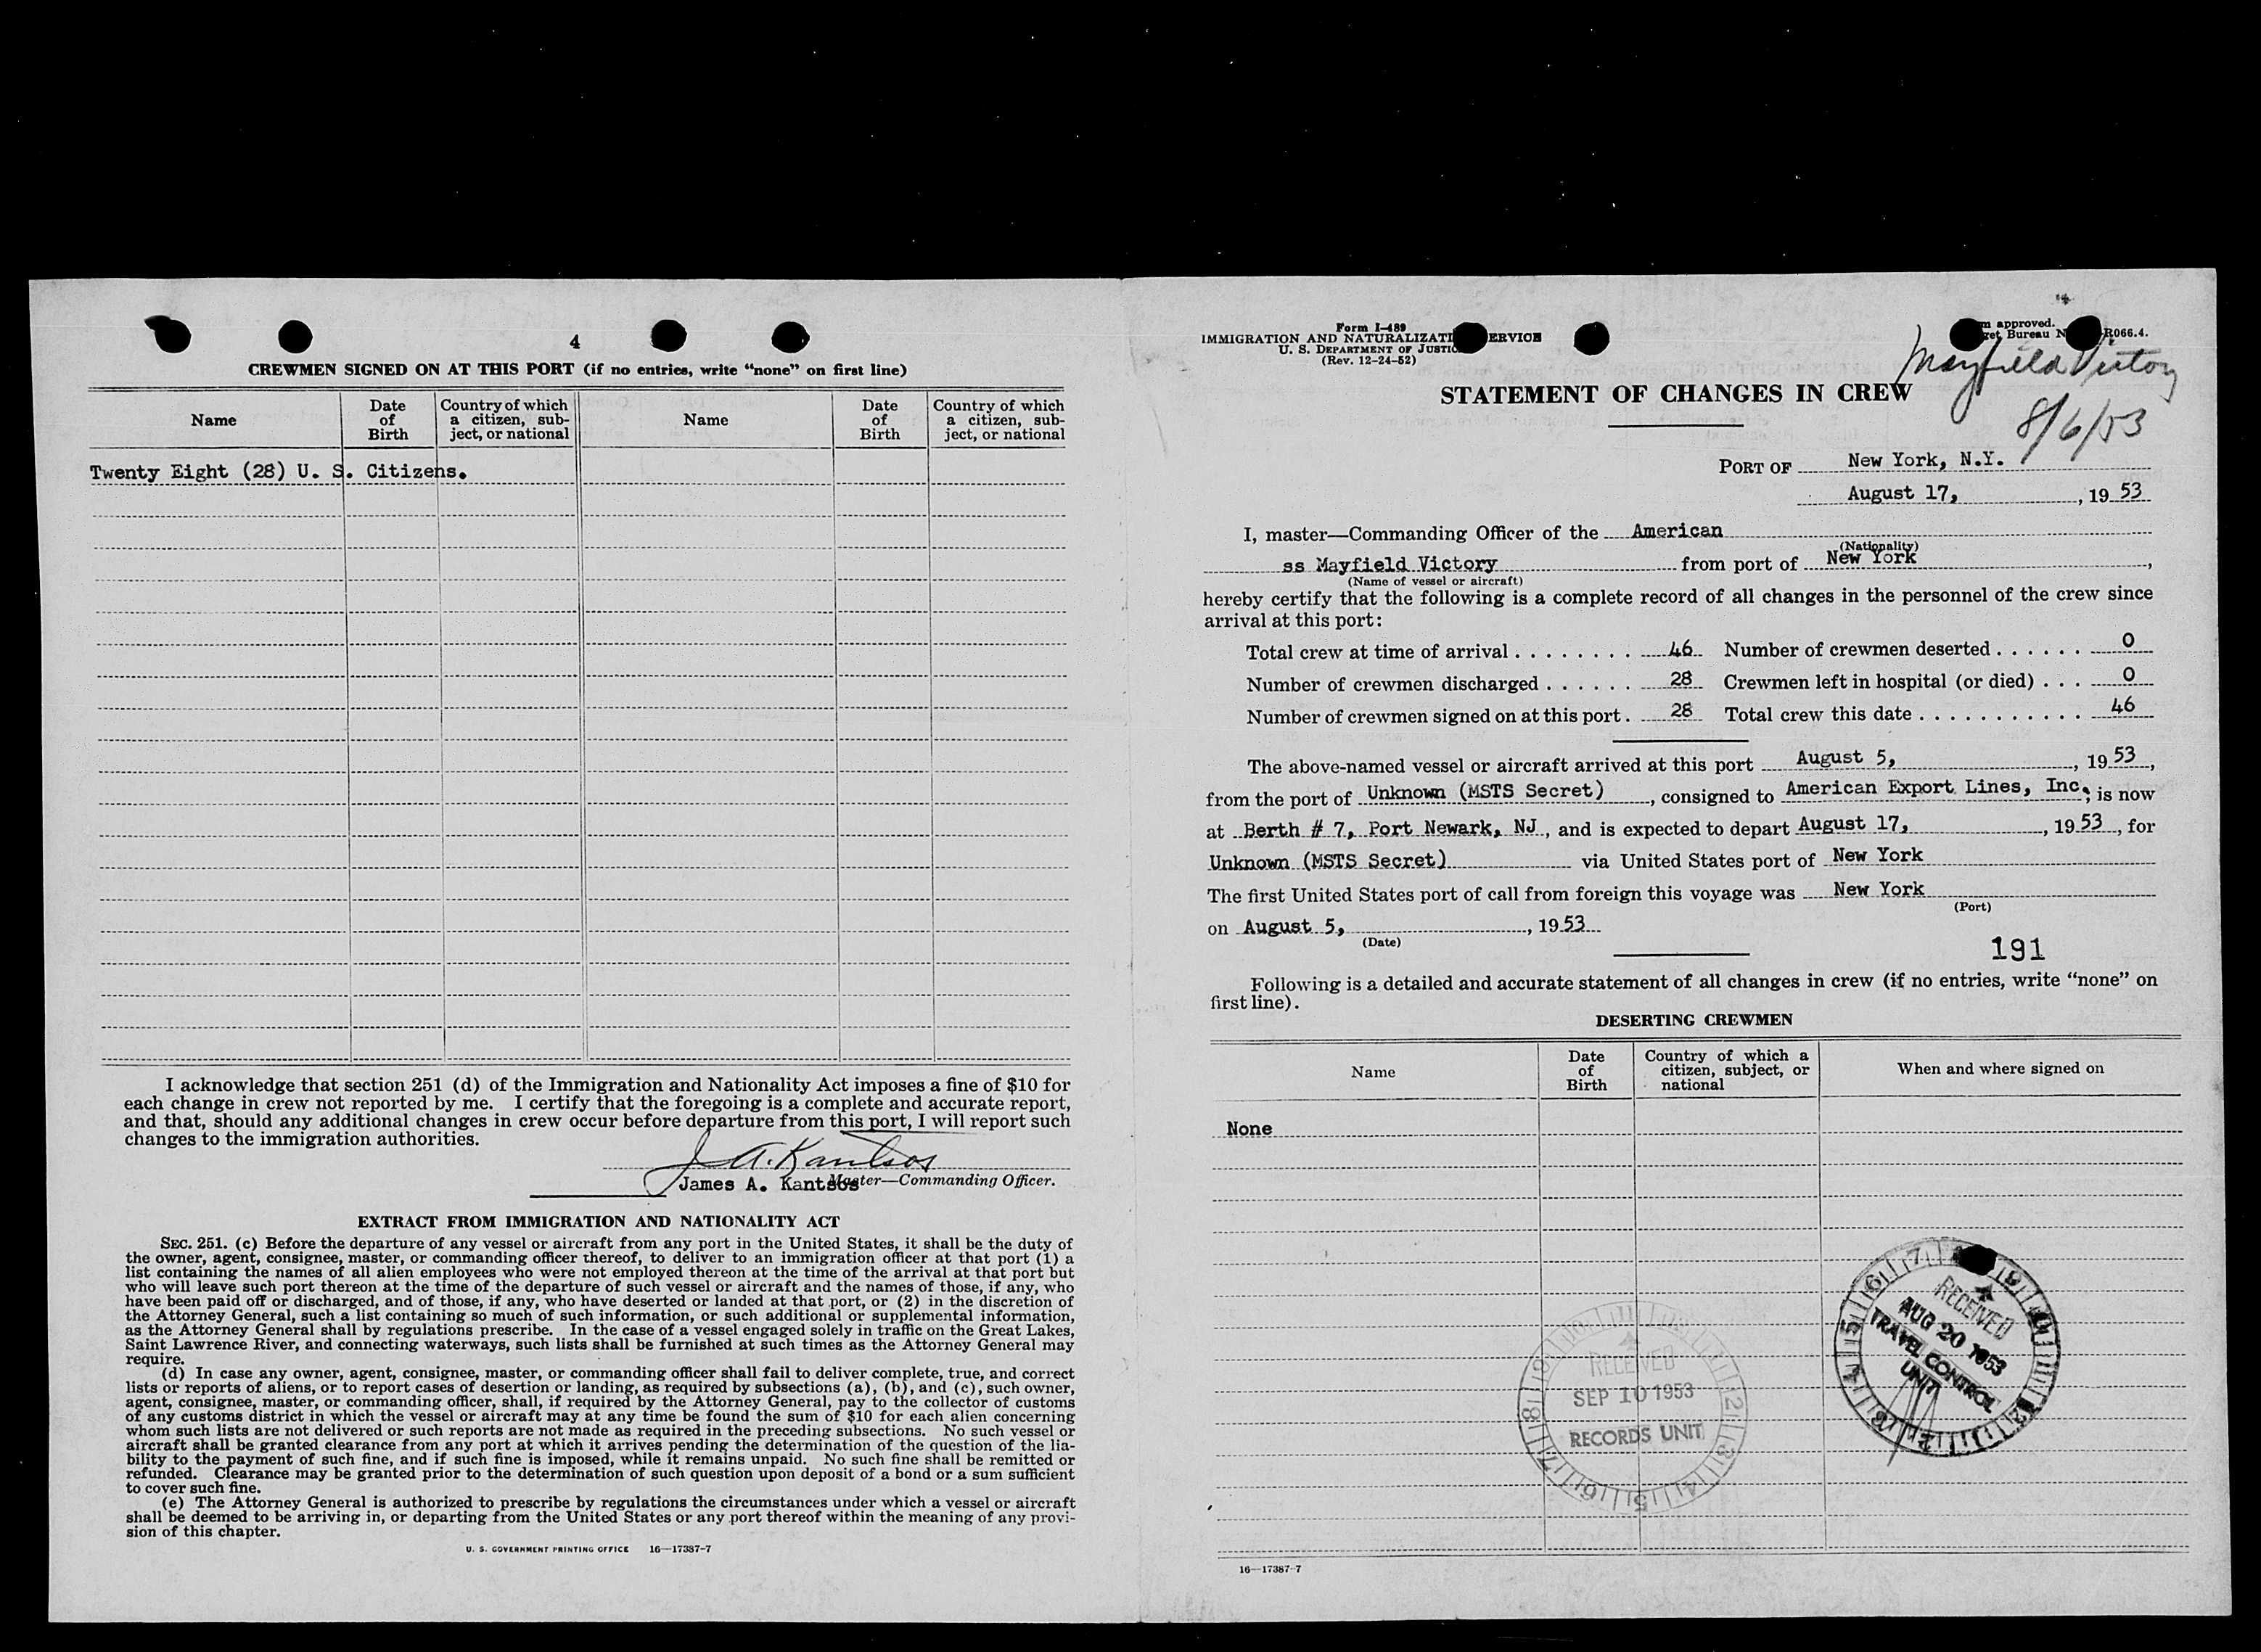 4
CREWMEN SIGNED ON AT THIS PORT (if no entries, write “none” on first line)
Name
Date of Birth
Country of which a citizen, sub-ject, or national
Name
Date of Birth
Country of which a citizen, sub-ject, or national
Twenty Eight (28) U. S. Citizens.
I acknowledge that section 251 (d) of the Immigration and Nationality Act imposes a fine of $10 for
each change in crew not reported by me. I certify that the foregoing is a complete and accurate report,
and that, should any additional changes in crew occur before departure from this port, I will report such
changes to the immigration authorities.
J A. Kantsos
James A. Kantsos Master—Commanding Officer.
EXTRACT FROM IMMIGRATION AND NATIONALITY ACT
SEC. 251. (c) Before the departure of any vessel or aircraft from any port in the United States, it shall be the duty of
the owner, agent, consignee, master, or commanding officer thereof, to deliver to an immigration officer at that port (1) a
list containing the names of all alien employees who were not employed thereon at the time of the arrival at that port but
who will leave such port thereon at the time of the departure of such vessel or aircraft and the names of those, if any, who
have been paid off or discharged, and of those, if any, who have deserted or landed at that port, or (2) in the discretion of
the Attorney General, such a list containing so much of such information, or such additional or supplemental information,
as the Attorney General shall by regulations prescribe. In the case of a vessel engaged solely in traffic on the Great Lakes,
Saint Lawrence River, and connecting waterways, such lists shall be furnished at such times as the Attorney General may
require.
(d) In case any owner, agent, consignee, master, or commanding officer shall fail to deliver complete, true, and correct
lists or reports of aliens, or to report cases of desertion or landing, as required by subsections (a), (b), and (c), such owner,
agent, consignee, master, or commanding officer, shall, if required by the Attorney General, pay to the collector of customs
of any customs district in which the vessel or aircraft may at any time be found the sum of $10 for each alien concerning
whom such lists are not delivered or such reports are not made as required in the preceding subsections. No such vessel or
aircraft shall be granted clearance from any port at which it arrives pending the determination of the question of the lia-
bility to the payment of such fine, and if such fine is imposed, while it remains unpaid. No such fine shall be remitted or
refunded. Clearance may be granted prior to the determination of such question upon deposit of a bond or a sum sufficient
to cover such fine.
(e) The Attorney General is authorized to prescribe by regulations the circumstances under which a vessel or aircraft
shall be deemed to be arriving in, or departing from the United States or any port thereof within the meaning of any provi-
sion of this chapter.
U. S. GOVERNMENT PRINTING OFFICE 16—17387-7
Form I-489
IMMIGRATION AND NATURALIZATI ERVICE
U. S. DEPARTMENT OF JUSTIC
(Rev. 12-24-52)
m approved.
get Bureau N R066.4.
Mayfield Victory
8/6/53
STATEMENT OF CHANGES IN CREW
PORT OF New York, N.Y.
August 17, , 19 53
I, master—Commanding Officer of the American
(Nationality)
ss Mayfield Victory from port of New York ,
(Name of vessel or aircraft)
hereby certify that the following is a complete record of all changes in the personnel of the crew since
arrival at this port:
Total crew at time of arrival . . . . . . . . 46 Number of crewmen deserted . . . . . . 0
Number of crewmen discharged . . . . . . 28 Crewmen left in hospital (or died) . . . 0
Number of crewmen signed on at this port . 28 Total crew this date . . . . . . . . . . . 46
The above-named vessel or aircraft arrived at this port August 5, , 19 53 ,
from the port of Unknown (MSTS Secret) , consigned to American Export Lines, Inc. ; is now
at Berth # 7, Port Newark, NJ , and is expected to depart August 17, , 19 53 , for
Unknown (MSTS Secret) via United States port of New York
The first United States port of call from foreign this voyage was New York
(Port)
on August 5, , 19 53
(Date)
191
Following is a detailed and accurate statement of all changes in crew (if no entries, write “none” on
first line).
DESERTING CREWMEN
Name
Date of Birth
Country of which a citizen, subject, or national
When and where signed on
None
RECEIVED
AUG 20 1953
TRAVEL CONTROL
UNIT
RECEIVED
SEP 10 1953
RECORDS UNIT
16—17387-7